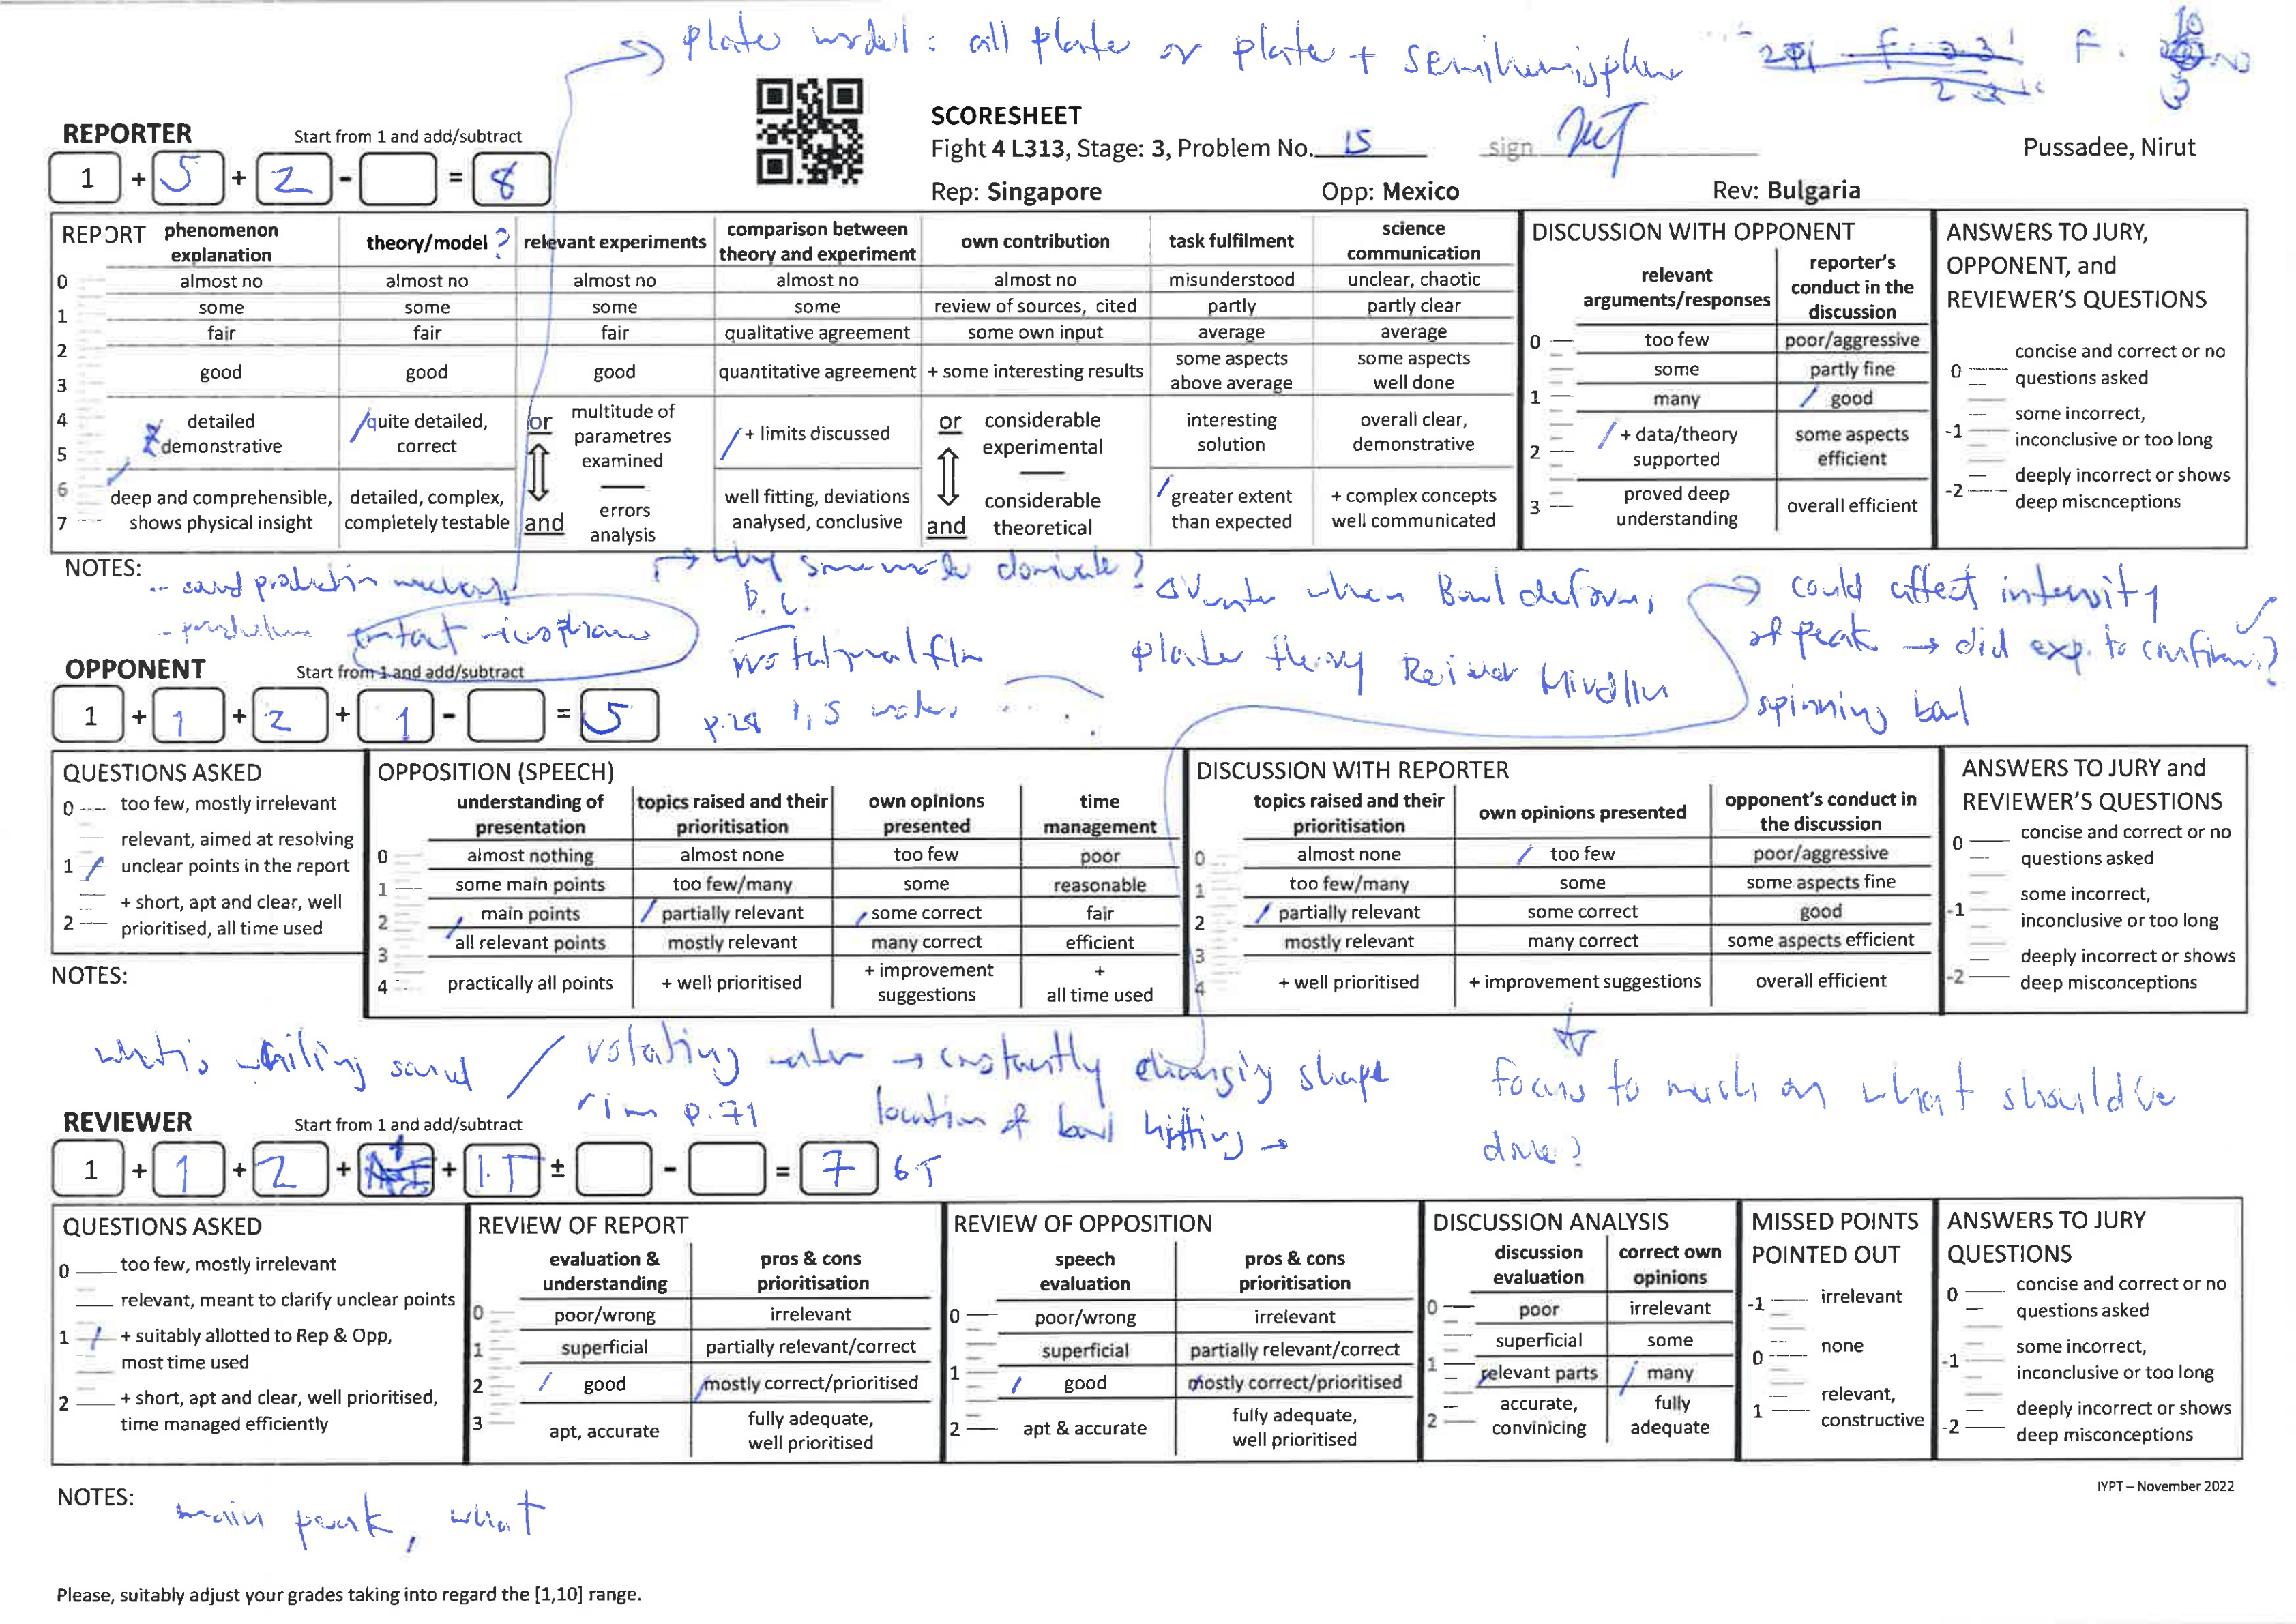 plate model : all plate or plate +
SCORESHEET
REPORTER Start from 1 and add/subtract
Fight 4 L313, Stage: 3, Problem No. 15 sign
Pussadee, Nirut
1 + 5 + 2 - = 8
Rep: Singapore Opp: Mexico Rev: Bulgaria
REPORT
phenomenon explanation
theory/model ?
relevant experiments
comparison between theory and experiment
own contribution
task fulfilment
science communication
0 almost no almost no almost no almost no almost no misunderstood unclear, chaotic
1 some some some some review of sources, cited partly partly clear
2 fair fair fair qualitative agreement some own input average average
3 good good good quantitative agreement + some interesting results some aspects above average some aspects well done
4 detailed demonstrative quite detailed, correct or multitude of parametres examined + limits discussed or considerable experimental interesting solution overall clear, demonstrative
5
6 deep and comprehensible, shows physical insight detailed, complex, completely testable and errors analysis well fitting, deviations analysed, conclusive and considerable theoretical greater extent than expected + complex concepts well communicated
7
DISCUSSION WITH OPPONENT
relevant arguments/responses
reporter's conduct in the discussion
0 too few poor/aggressive
some partly fine
1 many good
2 + data/theory supported some aspects efficient
3 proved deep understanding overall efficient
ANSWERS TO JURY, OPPONENT, and REVIEWER'S QUESTIONS
0 concise and correct or no questions asked
-1 some incorrect, inconclusive or too long
-2 deeply incorrect or shows deep miscnceptions
NOTES:
why some mode dominate?
when Ball deform,
could affect intensity
of peak → did exp. to confirm?
plate theory
spinning ball
OPPONENT Start from 1 and add/subtract
1 + 1 + 2 + 1 - = 5
QUESTIONS ASKED
0 too few, mostly irrelevant
1 relevant, aimed at resolving unclear points in the report
2 + short, apt and clear, well prioritised, all time used
OPPOSITION (SPEECH)
understanding of presentation
topics raised and their prioritisation
own opinions presented
time management
0 almost nothing almost none too few poor
1 some main points too few/many some reasonable
2 main points partially relevant some correct fair
3 all relevant points mostly relevant many correct efficient
4 practically all points + well prioritised + improvement suggestions + all time used
DISCUSSION WITH REPORTER
topics raised and their prioritisation
own opinions presented
opponent's conduct in the discussion
0 almost none too few poor/aggressive
1 too few/many some some aspects fine
2 partially relevant some correct good
3 mostly relevant many correct some aspects efficient
4 + well prioritised + improvement suggestions overall efficient
ANSWERS TO JURY and REVIEWER'S QUESTIONS
0 concise and correct or no questions asked
-1 some incorrect, inconclusive or too long
-2 deeply incorrect or shows deep misconceptions
NOTES:
rotating water → constantly changing shape
rim p.71 location of ball hitting →
focus to much on what should be
done?
REVIEWER Start from 1 and add/subtract
1 + 1 + 2 + + 1.5 ± - = 7
QUESTIONS ASKED
0 too few, mostly irrelevant
relevant, meant to clarify unclear points
1 + suitably allotted to Rep & Opp, most time used
2 + short, apt and clear, well prioritised, time managed efficiently
REVIEW OF REPORT
evaluation & understanding
pros & cons prioritisation
0 poor/wrong irrelevant
1 superficial partially relevant/correct
2 good mostly correct/prioritised
3 apt, accurate fully adequate, well prioritised
REVIEW OF OPPOSITION
speech evaluation
pros & cons prioritisation
0 poor/wrong irrelevant
superficial partially relevant/correct
1 good mostly correct/prioritised
2 apt & accurate fully adequate, well prioritised
DISCUSSION ANALYSIS
discussion evaluation
correct own opinions
0 poor irrelevant
superficial some
1 relevant parts many
2 accurate, convinicing fully adequate
MISSED POINTS POINTED OUT
-1 irrelevant
0 none
1 relevant, constructive
ANSWERS TO JURY QUESTIONS
0 concise and correct or no questions asked
-1 some incorrect, inconclusive or too long
-2 deeply incorrect or shows deep misconceptions
NOTES:
main peak, what
IYPT – November 2022
Please, suitably adjust your grades taking into regard the [1,10] range.